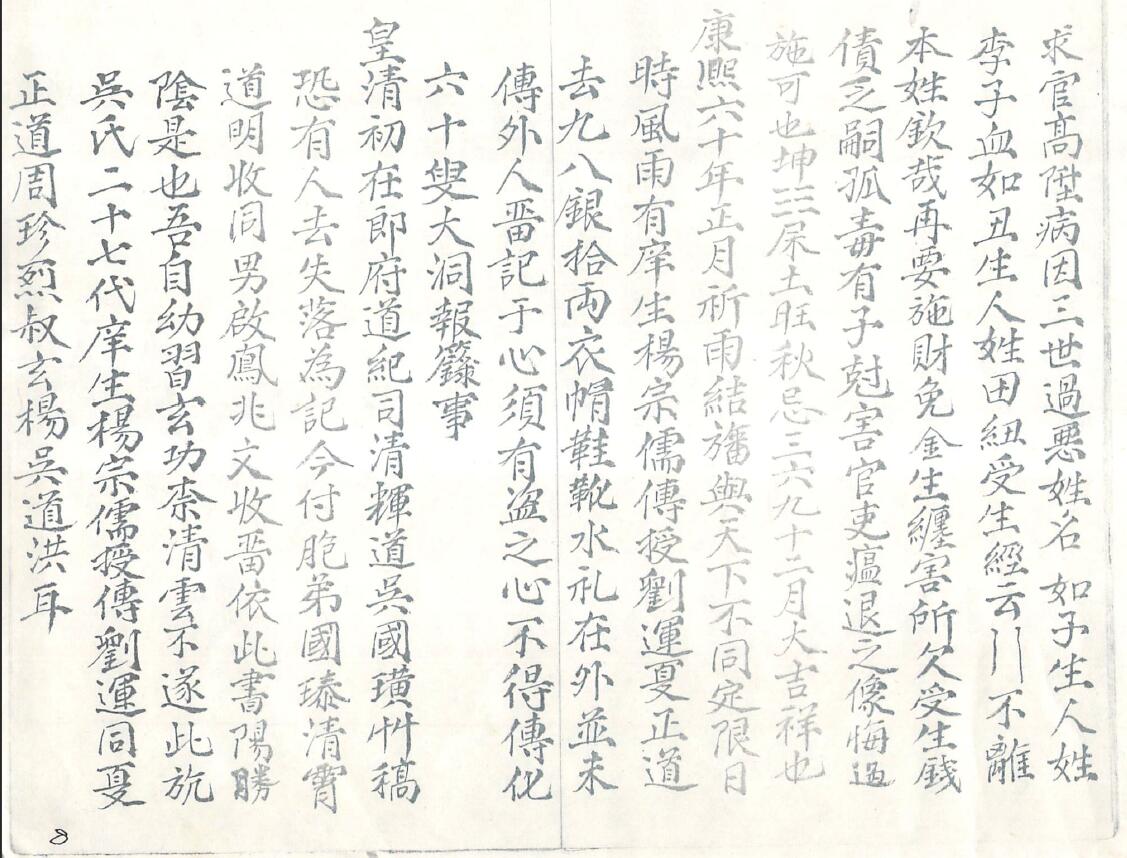 求官高陞病因三世過惡姓名如子生人姓
李子血如丑生人姓田紐受生經云不離
本姓欽哉再要施財免金生纏害所欠受生錢
債乏嗣孤毒有子尅害官吏瘟退之像悔過
施可也坤三屎土旺秋忌三六九十二月大吉祥也
康熈六十年正月祈雨結旛與天下不同定限日
時風雨有庠生楊宗儒傳授劉運夏正道
去九八銀拾両衣帽鞋靴水礼在外並未
傳外人畨記于心須有盗之心不得傳化
六十叟大洞報籙事
皇清初在郎府道紀司清輝道吳國璜艸稿
恐有人去失落為記今付胞弟國瑧清霄
道明收洞男啟鳳兆文收畨依此書陽勝
陰是也吾自幼習玄功柰清雲不遂此旊
吳氏二十七代庠生楊宗儒授傳劉運同夏
正道周珍烈叔玄楊吳道洪耳
8